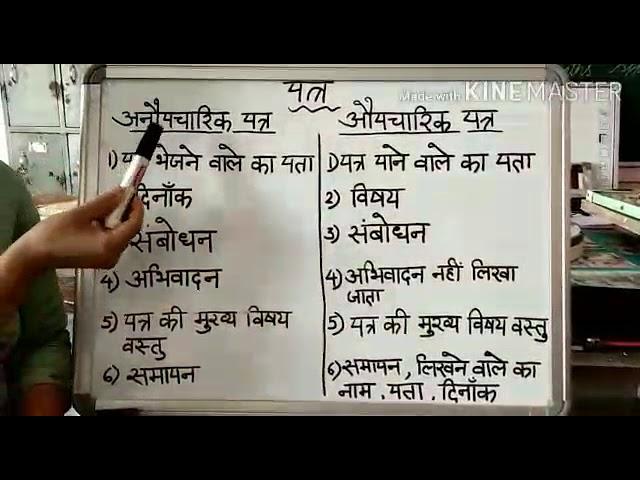 Made with KINEMASTER
पत्र
अनौपचारिक पत्र
1) भेजने वाले का पता
दिनाँक
संबोधन
4) अभिवादन
5) पत्र की मुख्य विषय
वस्तु
6) समापन
औपचारिक पत्र
1) पत्र पाने वाले का पता
2) विषय
3) संबोधन
4) अभिवादन नहीं लिखा
जाता
5) पत्र की मुख्य विषय वस्तु
6) समापन, लिखने वाले का
नाम, पता, दिनाँक